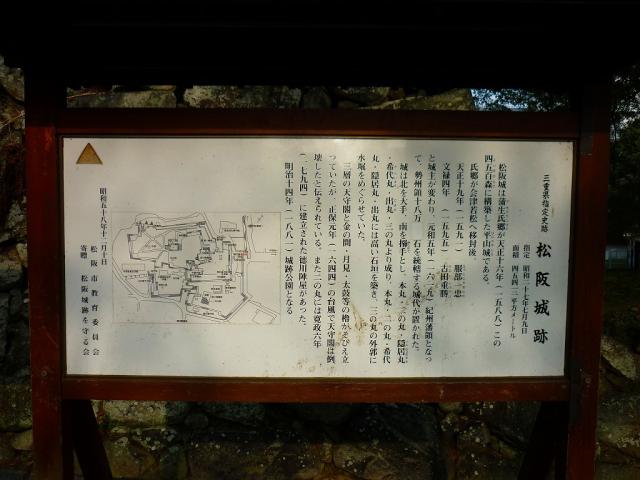 三重県指定史跡
松阪城跡
指定 昭和二十七年七月九日
面積 四五四三二平方メートル
松阪城は蒲生氏郷が天正十六年(一五八八)この
四五百森に構築した平山城である。
氏郷が会津若松へ移封後
天正十九年(一五九一) 服部一忠
文禄四年 (一五九五) 古田重勝
と城主が変わり、元和五年(一六一九)紀州藩領となっ
て、勢州領十八万 石を統轄する城代が置かれた。
城は北を大手、南を搦手とし、本丸・二の丸・隠居丸
・希代丸・出丸・三の丸より成り、本丸・二の丸・希代
丸・隠居丸・出丸には高い石垣を築き、三の丸の外郭に
水堀をめぐらせていた。
三層の天守閣と金の間・月見・太鼓等の櫓がそびえ立
っていたが、正保元年(一六四四)の台風で天守閣は倒
壊したと伝えられている。また二の丸には寛政六年
(一七九四)に建立された徳川陣屋があった。
明治十四年(一八八一)城跡公園となる
昭和五十八年十二月十日
松阪市教育委員会
寄贈 松阪城跡を守る会